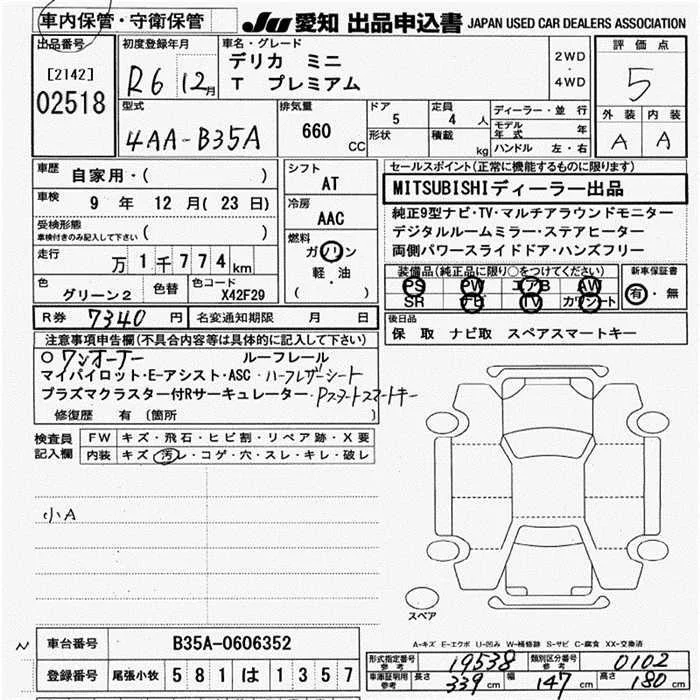 車内保管・守衛保管
JU 愛知 出品申込書 JAPAN USED CAR DEALERS ASSOCIATION
出品番号
[2142]
02518
初度登録年月
R6 12月
車名・グレード
デリカ ミニ
T プレミアム
2WD
・
4WD
評価点
5
外装 内装
A A
型式
4AA-B35A
排気量
660 CC
ドア
5
形状
定員
4 人
積載
kg
ディーラー・並行
モデル年式 年
ハンドル 左・右
車歴
自家用・( )
車検
9 年 12 月 (23 日)
受検形態
車検付きのみ記入して下さい ( )
走行
万 1 千 7 7 4 km
色
グリーン2
色替
色コード
X42F29
シフト
AT
冷房
AAC
燃料
ガソリン
軽・油
( )
セールスポイント(正常に機能するものに限ります)
MITSUBISHIディーラー出品
純正9型ナビ・TV・マルチアラウンドモニター
デジタルルームミラー・ステアヒーター
両側パワースライドドア・ハンズフリー
装備品(純正品に限り○をつけてください)
PS PW エアB AW
SR ナビ TV カワシート
新車保証書
有・無
R券 7340 円 名変通知期限 月 日
後日品
保 取 ナビ取 スペアスマートキー
注意事項申告欄(不具合内容等は具体的に記入して下さい)
○ワンオーナー ルーフレール
マイパイロット・E-アシスト・ASC・ハーフレザーシート
プラズマクラスター付Rサーキュレーター・Pスタートスマートキー
修復歴 有 (箇所 )
検査員記入欄
FW キズ・飛石・ヒビ割・リペア跡・X要
内装 キズ・汚レ・コゲ・穴・スレ・キレ・破レ
小A
スペア
A-キズ E-エクボ U-凹み W-補修跡 S-サビ C-腐食 XX-交換済
N
車台番号 B35A-0606352
登録番号 尾張小牧 5 8 1 は 1 3 5 7
形式指定番号参考 19538 類別区分番号参考 0102
車庫証明用参考 長さ 339 cm 幅 147 cm 高さ 180 cm